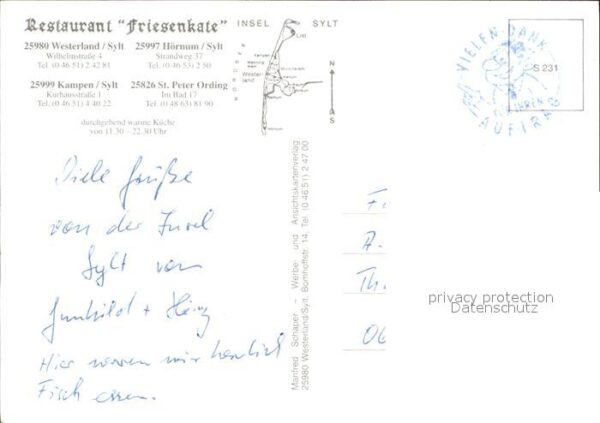 Restaurant "Friesenkate"
25980 Westerland / Sylt
Wilhelmstraße 4
Tel. (0 46 51) 2 42 81
25997 Hörnum / Sylt
Strandweg 37
Tel. (0 46 53) 2 50
25999 Kampen / Sylt
Kurhausstraße 1
Tel. (0 46 51) 4 40 22
25826 St. Peter Ording
Im Bad 17
Tel. (0 48 63) 81 90
durchgehend warme Küche
von 11.30 - 22.30 Uhr
INSEL SYLT
NORDSEE
List
Kampen
Westerland
Hörnum
N
S
VIELEN DANK
IHREN
AUFTRAG
S 231
Viele Grüße
von der Insel
Sylt von
Gunhild + Heinz
Hier waren wir herrlich
Fisch essen.
Manfred Schaper - Werbe- und Ansichtskartenverlag
25980 Westerland/Sylt, Bomhoffstr. 14, Tel. (0 46 51) 2 47 00
F
A.
Th.
privacy protection
Datenschutz